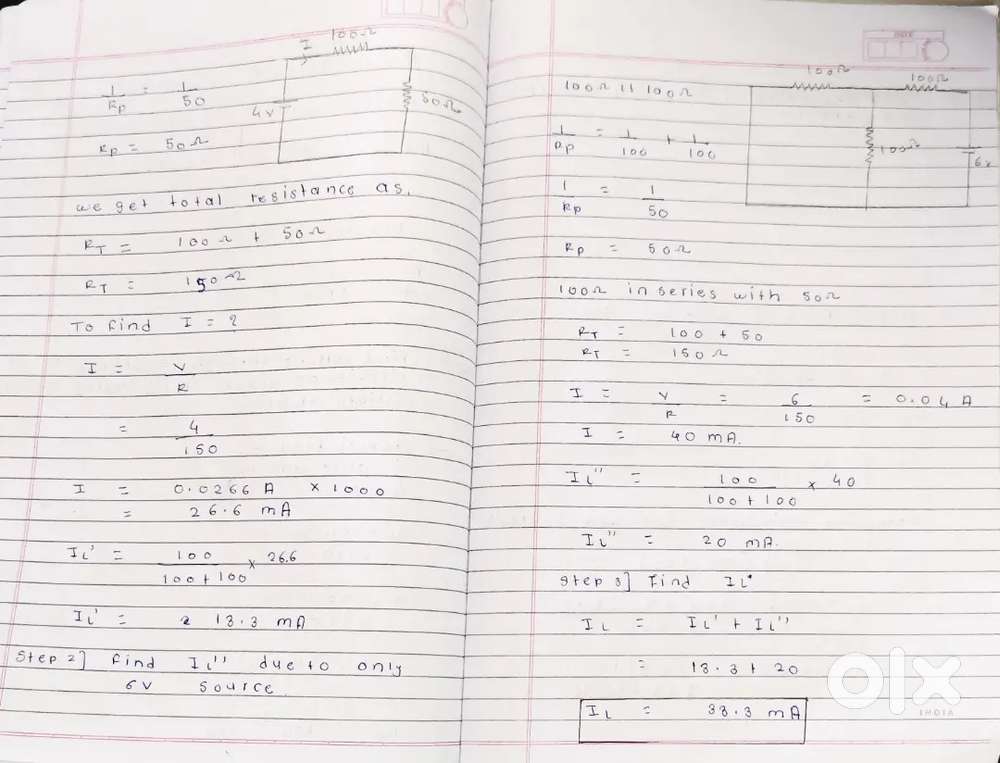 I 100Ω
4V
50Ω
1/Rp = 1/50
Rp = 50Ω
we get total resistance as,
RT = 100Ω + 50Ω
RT = 150Ω
To find I = ?
I = V/R
= 4/150
I = 0.0266 A × 1000
= 26.6 mA
IL' = 100/100+100 × 26.6
IL' = 13.3 mA
Step 2] find IL'' due to only
6V source.
100Ω 100Ω
100Ω
6V
100Ω || 100Ω
1/Rp = 1/100 + 1/100
1/Rp = 1/50
Rp = 50Ω
100Ω in series with 50Ω
RT = 100 + 50
RT = 150Ω
I = V/R = 6/150 = 0.04 A
I = 40 mA.
IL'' = 100/100+100 × 40
IL'' = 20 mA.
Step 3] Find IL
IL = IL' + IL''
= 13.3 + 20
IL = 33.3 mA
olx
INDIA